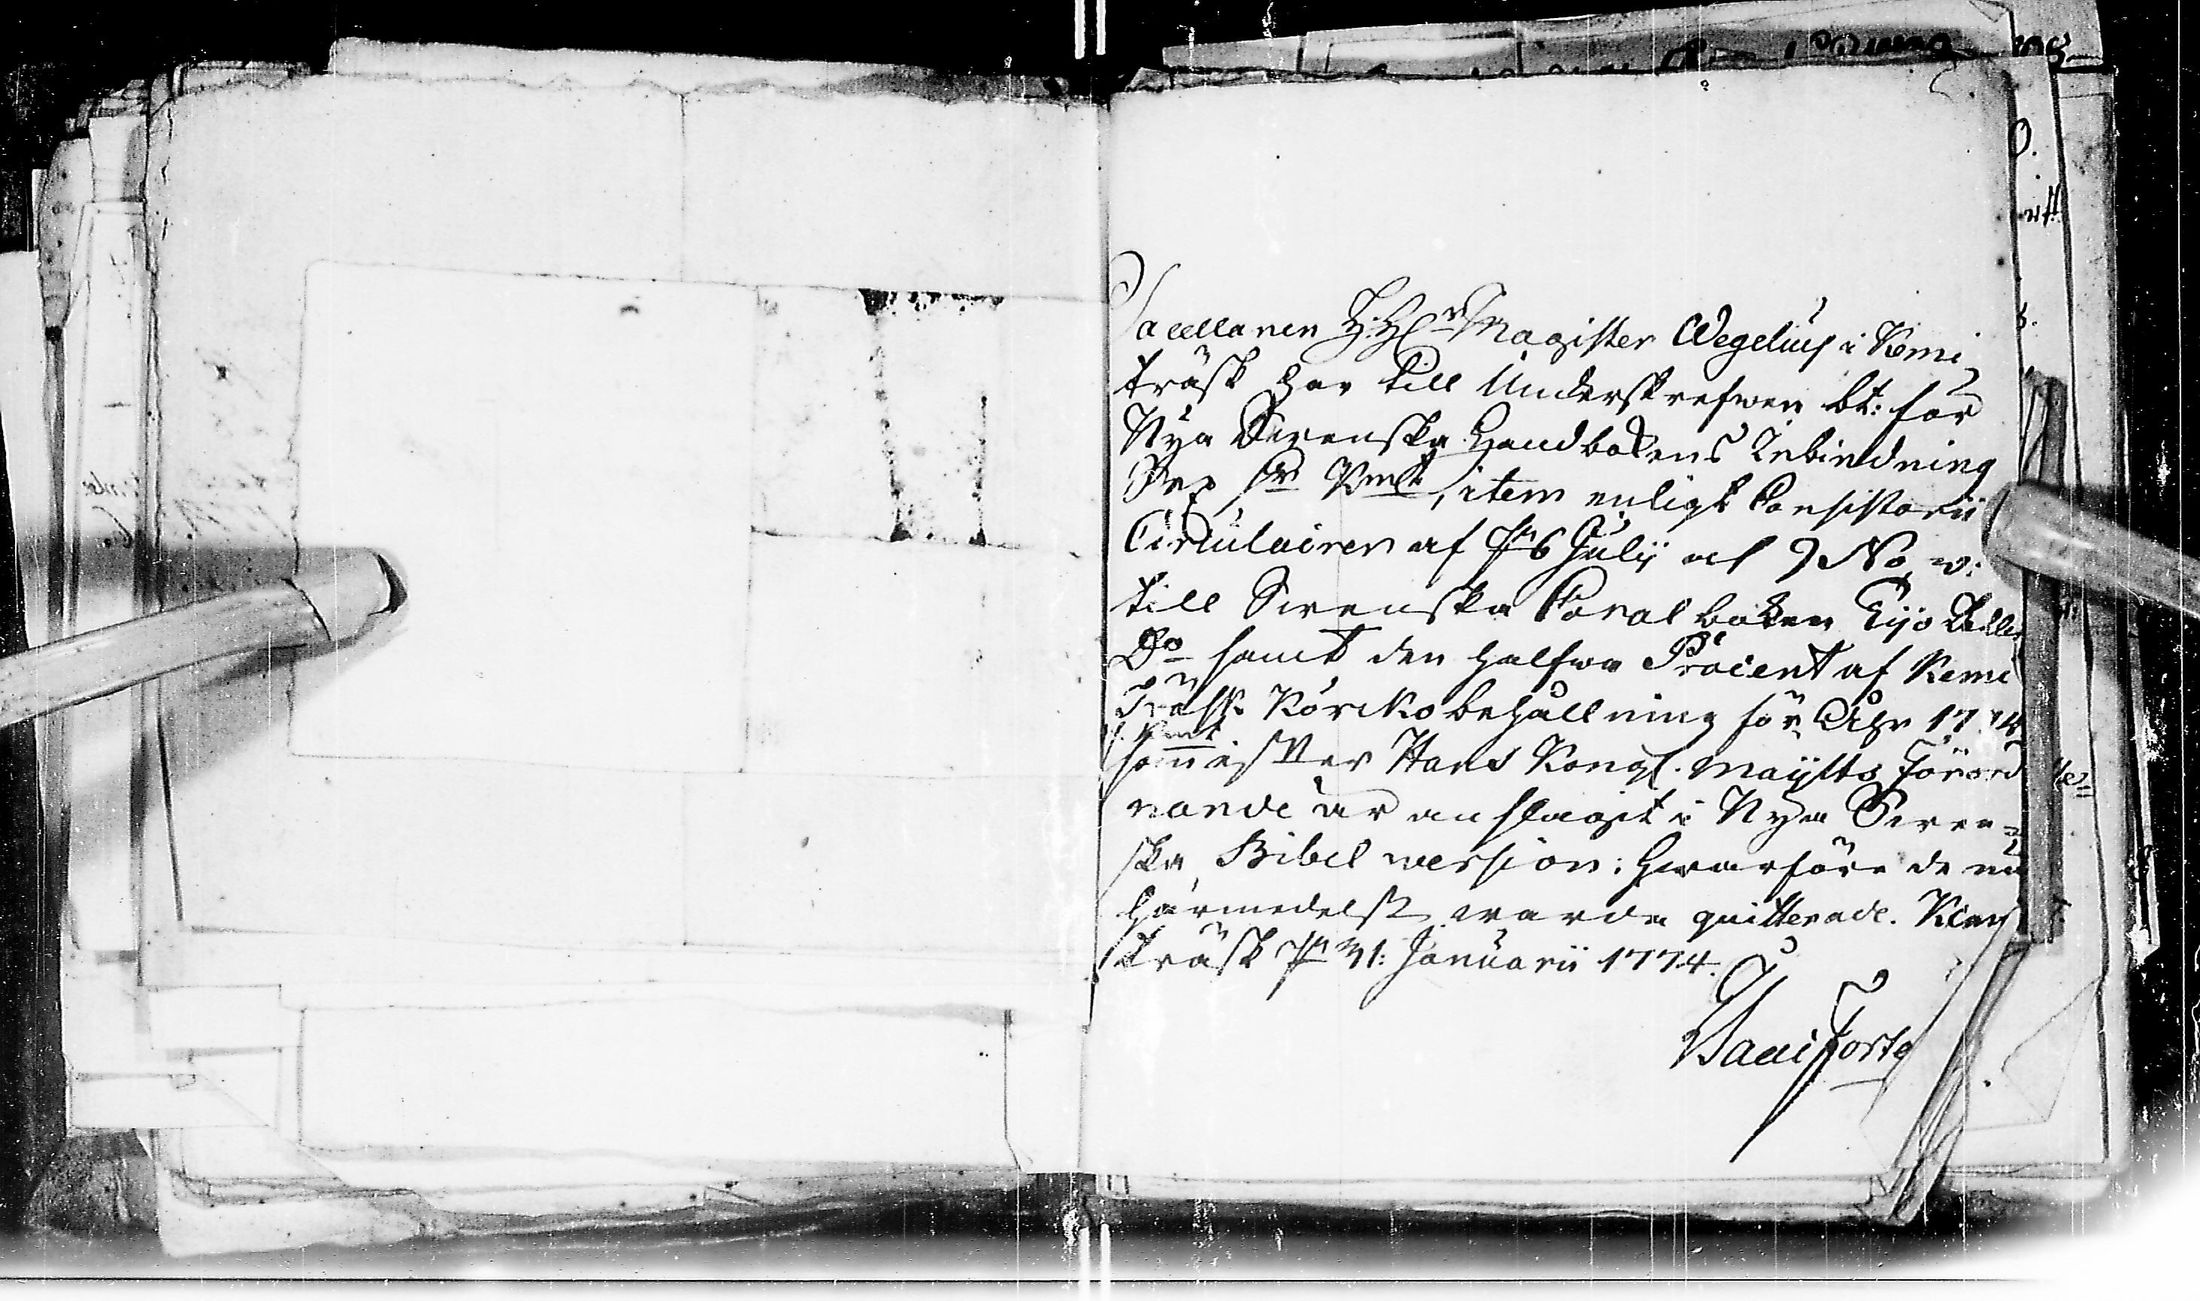 Sacellanen H. Hr Magister Wegelius i Kemi
träsk har till Underskrefwen bt: för
Nya Swenska Handbokens Inbindning
Sex sr Kmt, item enligt Consistorii
Circulairer af d. 6 Julii och 9 Nov:
till Swenska Coralboken Tijo Daler
Do samt den halfwa Procent af Kemi
Träsk Körcko behållning för Åhr 1774
som efter Hans Kongl. Maijtts Förord
nande är anslagit i Nya Swen=
ska Bibel version: hwarföre de nu
härmedelst warda quitterade. Kimi
träsk d. 31: Januarii 1774.